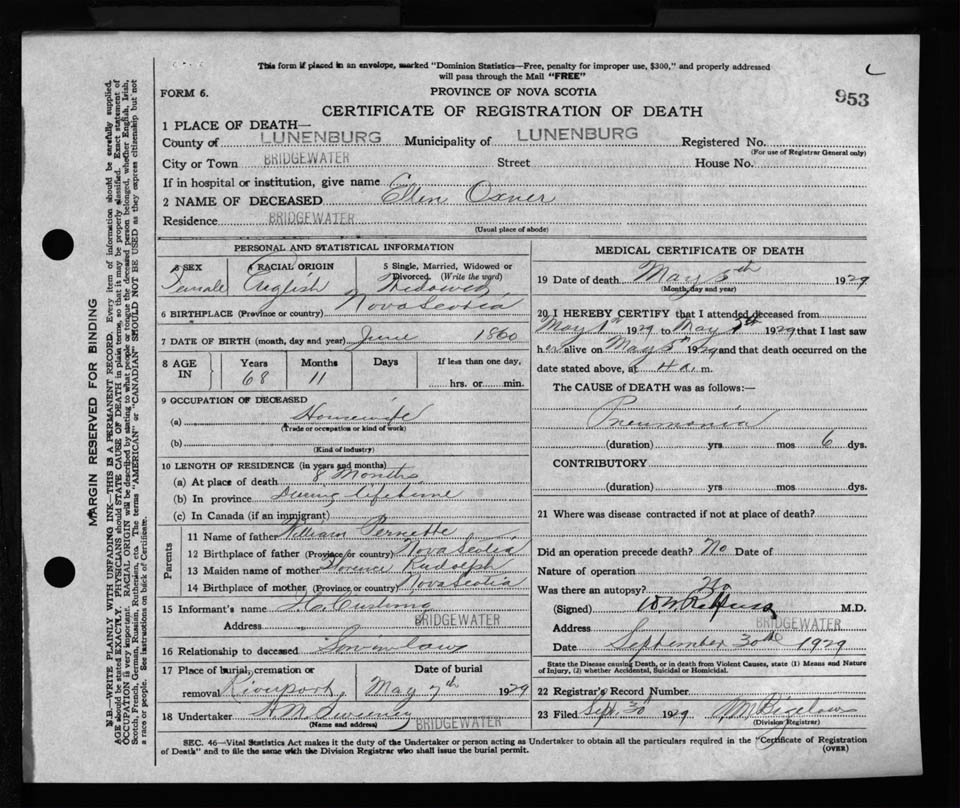 This form if placed in an envelope, marked "Dominion Statistics—Free, penalty for improper use, $300," and properly addressed
will pass through the Mail "FREE"
953
FORM 6.
PROVINCE OF NOVA SCOTIA
CERTIFICATE OF REGISTRATION OF DEATH
1 PLACE OF DEATH—
County of LUNENBURG Municipality of LUNENBURG Registered No.
(For use of Registrar General only)
City or Town BRIDGEWATER Street House No.
If in hospital or institution, give name
2 NAME OF DECEASED Ellen Oxner
Residence BRIDGEWATER
(Usual place of abode)
PERSONAL AND STATISTICAL INFORMATION
3 SEX 4 RACIAL ORIGIN 5 Single, Married, Widowed or
Divorced. (Write the word)
Female English Widowed
6 BIRTHPLACE (Province or country) Nova Scotia
7 DATE OF BIRTH (month, day and year) June 1860
8 AGE IN Years Months Days If less than one day,
68 11 hrs. or min.
9 OCCUPATION OF DECEASED
(a) Housewife
(Trade or occupation or kind of work)
(b)
(Kind of industry)
10 LENGTH OF RESIDENCE (in years and months)
(a) At place of death 8 Months
(b) In province During lifetime
(c) In Canada (if an immigrant)
Parents
11 Name of father William Pernette
12 Birthplace of father (Province or country) Nova Scotia
13 Maiden name of mother Florence Rudolph
14 Birthplace of mother (Province or country) Nova Scotia
15 Informant's name H. Cushing
Address BRIDGEWATER
16 Relationship to deceased Son in law
17 Place of burial, cremation or Date of burial
removal Riverport, May 7th 1929
18 Undertaker BRIDGEWATER
(Name and address)
MEDICAL CERTIFICATE OF DEATH
19 Date of death May 5th 1929
(Month, day and year)
20 I HEREBY CERTIFY that I attended deceased from
May 1st 1929 to May 5th 1929 that I last saw
her alive on May 5th 1929 and that death occurred on the
date stated above, at m.
The CAUSE OF DEATH was as follows:—
Pneumonia
(duration) yrs mos 6 dys.
CONTRIBUTORY
(duration) yrs mos dys.
21 Where was disease contracted if not at place of death?
Did an operation precede death? No Date of
Nature of operation
Was there an autopsy? No
(Signed) M.D.
Address BRIDGEWATER
Date September 30th 1929
State the Disease causing Death, or in death from Violent Causes, state (1) Means and Nature
of Injury, (2) whether Accidental, Suicidal or Homicidal.
22 Registrar's Record Number
23 Filed Sept 30 1929 Bigelow
(Division Registrar)
SEC. 46—Vital Statistics Act makes it the duty of the Undertaker or person acting as Undertaker to obtain all the particulars required in the "Certificate of Registration
of Death" and to file the same with the Division Registrar who shall issue the burial permit. (OVER)
MARGIN RESERVED FOR BINDING
N.B.—WRITE PLAINLY WITH UNFADING INK—THIS IS A PERMANENT RECORD. Every item of information should be carefully supplied.
AGE should be stated EXACTLY. PHYSICIANS should STATE CAUSE OF DEATH in plain terms, so that it may be properly classified. Exact statement of
OCCUPATION is very important. RACIAL ORIGIN will be described by stating to what people or tongue the deceased person belonged, whether English, Irish,
Scotch, French, German, Russian, Ruthenian, etc. The terms "AMERICAN" or "CANADIAN" SHOULD NOT BE USED as they express citizenship but not
a race or people. See instructions on back of Certificate.